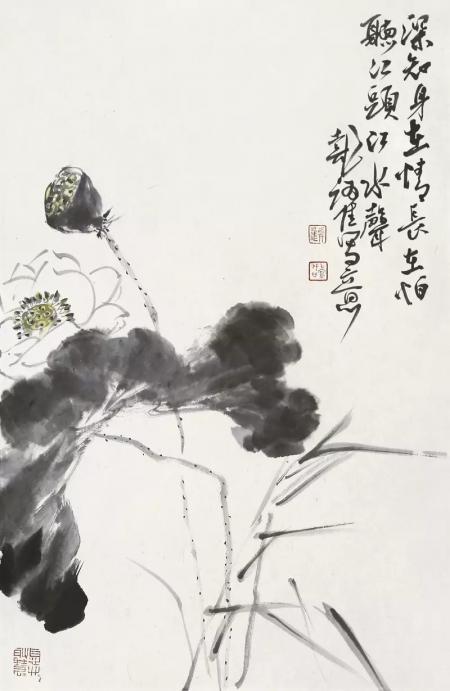 深知身在情長在怕
聽江頭江水聲
寫意